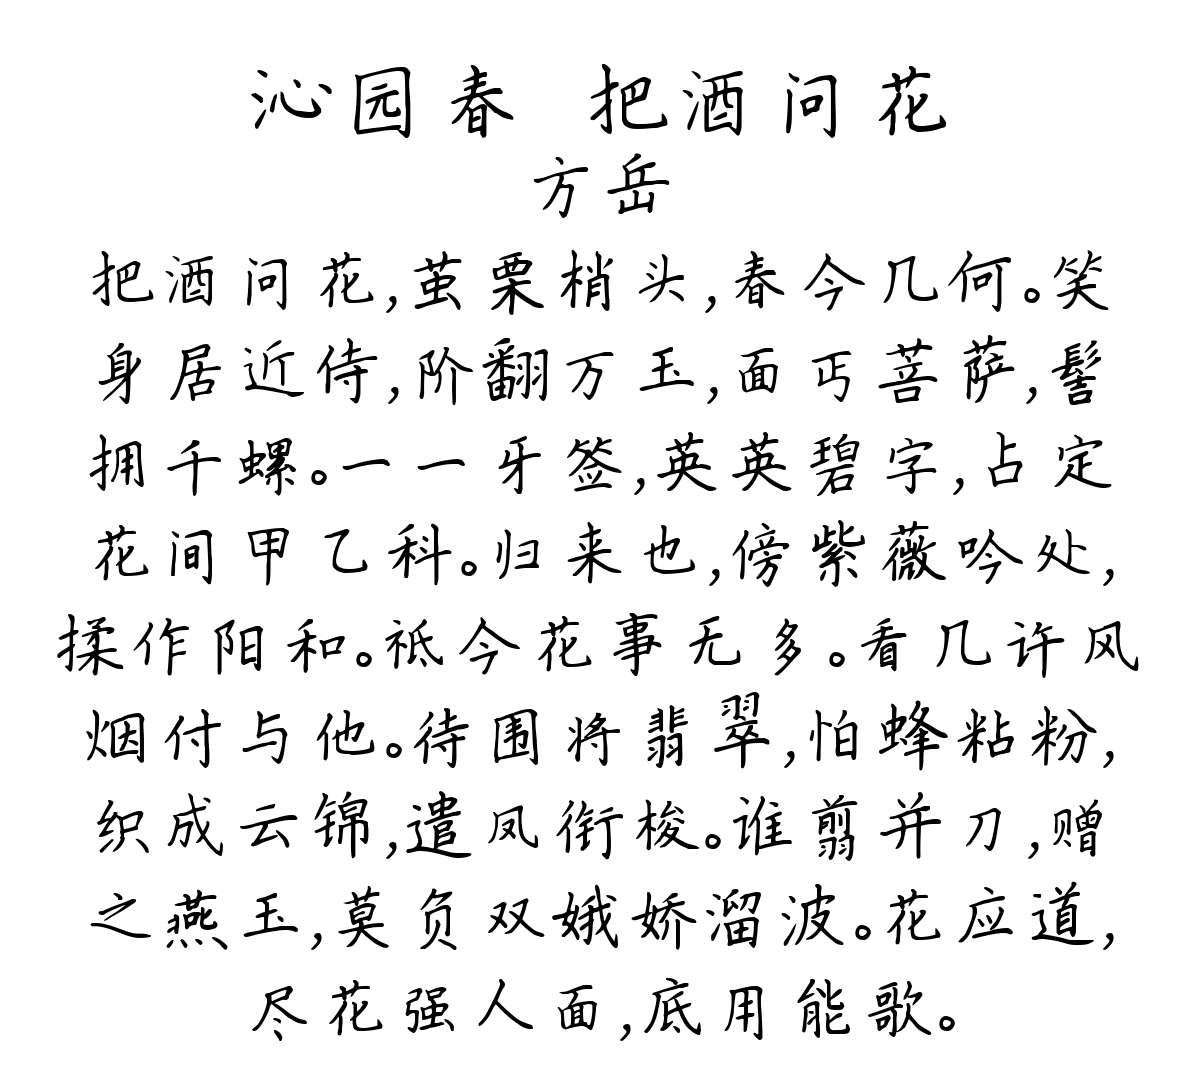 沁园春 把酒问花
方岳
把酒问花,茧栗梢头,春今几何。笑
身居近侍,阶翻万玉,面丐菩萨,髻
拥千螺。一一牙签,英英碧字,占定
花间甲乙科。归来也,傍紫薇吟处,
揉作阳和。祗今花事无多。看几许风
烟付与他。待围将翡翠,怕蜂粘粉,
织成云锦,遣凤衔梭。谁翦并刀,赠
之燕玉,莫负双娥娇溜波。花应道,
尽花强人面,底用能歌。